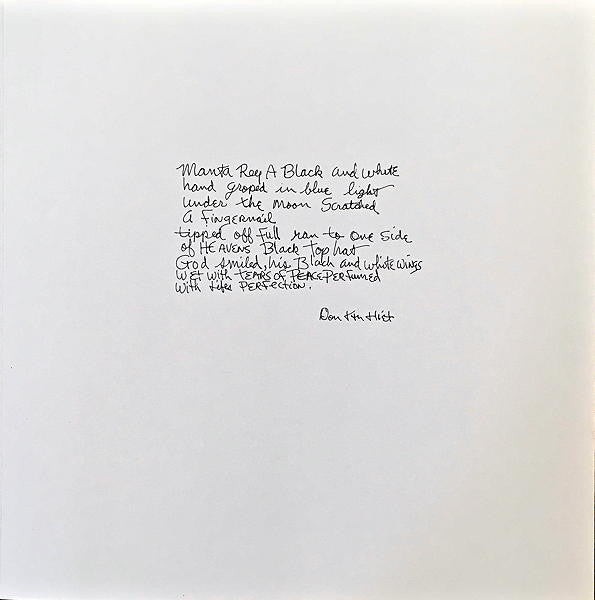 Manta Ray A Black and white
hand groped in blue light
under the moon Scratched
A Fingernail
tipped off Full ran to One Side
of HEAVENS Black Top hat
God smiled, his Black and white wings
WET with TEARS OF PEACE PERFUMED
With Lifes PERFECTION.
Don Van Vliet